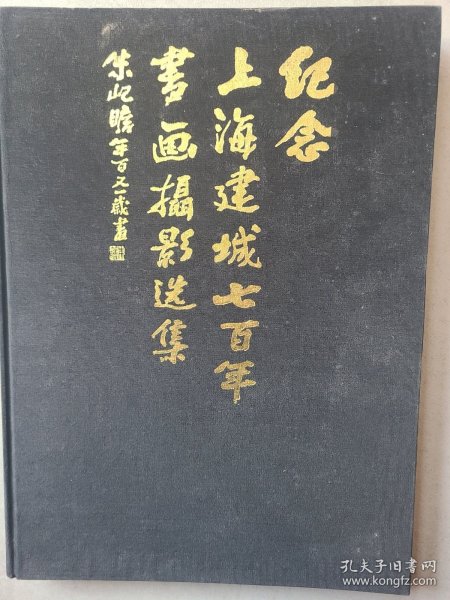 纪念
上海建城七百年
書画攝影选集
朱屺瞻年百又一歲畫
孔夫子旧书网
www.kongfz.com